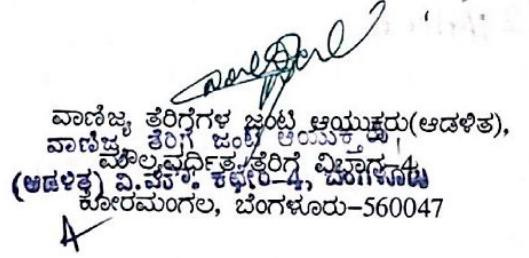 ವಾಣಿಜ್ಯ ತೆರಿಗೆಗಳ ಜಂಟಿ ಆಯುಕ್ತರು(ಆಡಳಿತ),
ವಾಣಿಜ್ಯ ತೆರಿಗೆ ಜಂಟಿ ಆಯುಕ್ತ
ಮೌಲ್ಯವರ್ಧಿತ ತೆರಿಗೆ ವಿಭಾಗ-4,
(ಆಡಳಿತ) ಕಛೇರಿ-4, ಬೆಂಗಳೂರು
ಕೋರಮಂಗಲ, ಬೆಂಗಳೂರು-560047